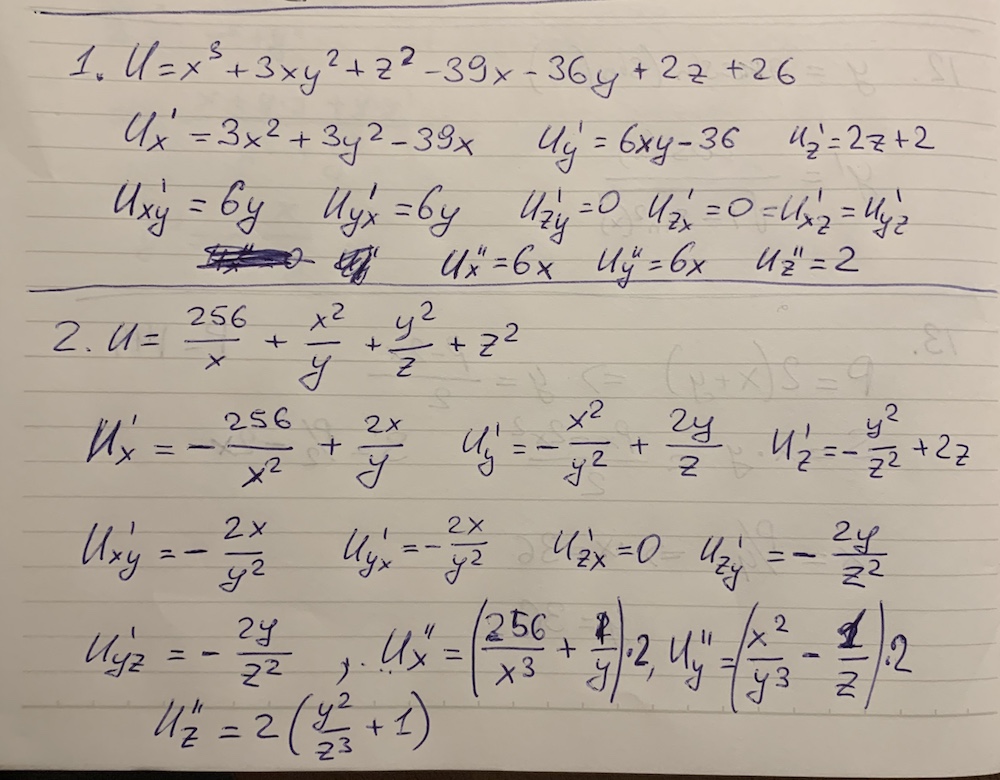 1. U = x³ + 3xy² + z² - 39x - 36y + 2z + 26
Ux' = 3x² + 3y² - 39x Uy' = 6xy - 36 Uz' = 2z + 2
Uxy' = 6y Uyx' = 6y Uzy' = 0 Uzx' = 0 = Uxz' = Uyz'
Ux'' = 6x Uy'' = 6x Uz'' = 2
2. U = 256/x + x²/y + y²/z + z²
Ux' = - 256/x² + 2x/y Uy' = - x²/y² + 2y/z Uz' = - y²/z² + 2z
Uxy' = - 2x/y² Uyx' = - 2x/y² Uzx' = 0 Uzy' = - 2y/z²
Uyz' = - 2y/z² , Ux'' = (256/x³ + 1/y)·2, Uy'' = (x²/y³ - 1/z)·2
Uz'' = 2 (y²/z³ + 1)